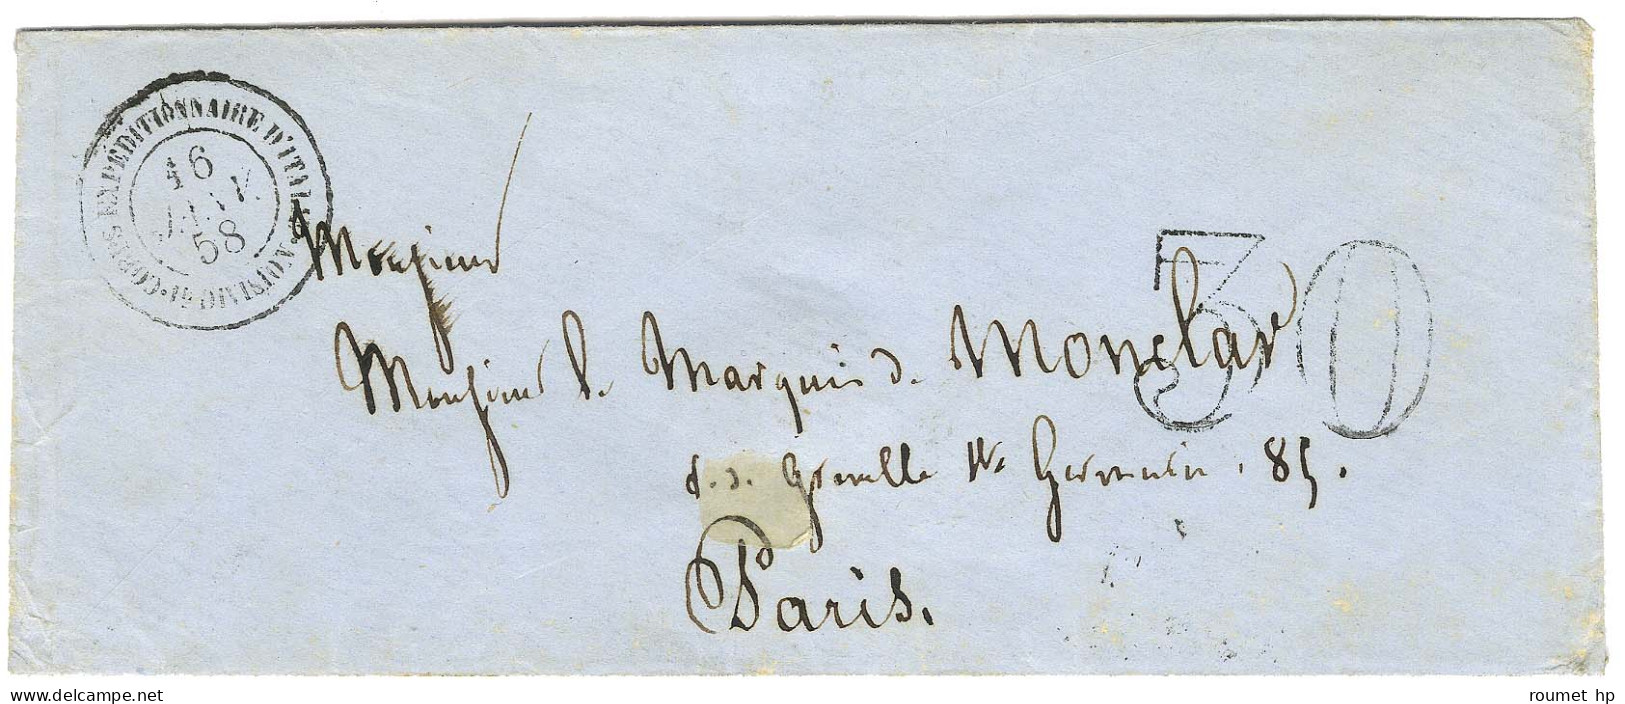 CORPS EXPÉDITIONNAIRE D'ITALIE
16
JANV.
58
Monsieur
Monsieur le Marquis de Monclar
30
Grenelle St Germain . 85.
Paris.
www.delcampe.net
roumet hp